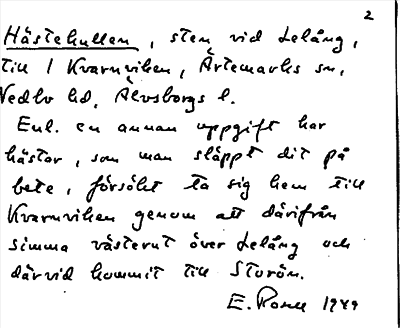 2
Hästekullen, sten vid Lelång,
till 1 Kvarnviken, Ärtemarks sn,
Vedbo hd, Älvsborgs l.
Enl. en annan uppgift har
hästar, som man släppt dit på
bete, försökt ta sig hem till
Kvarnviken genom att därifrån
simma västerut över Lelång och
därvid kommit till Storön.
E. Rosell 1949